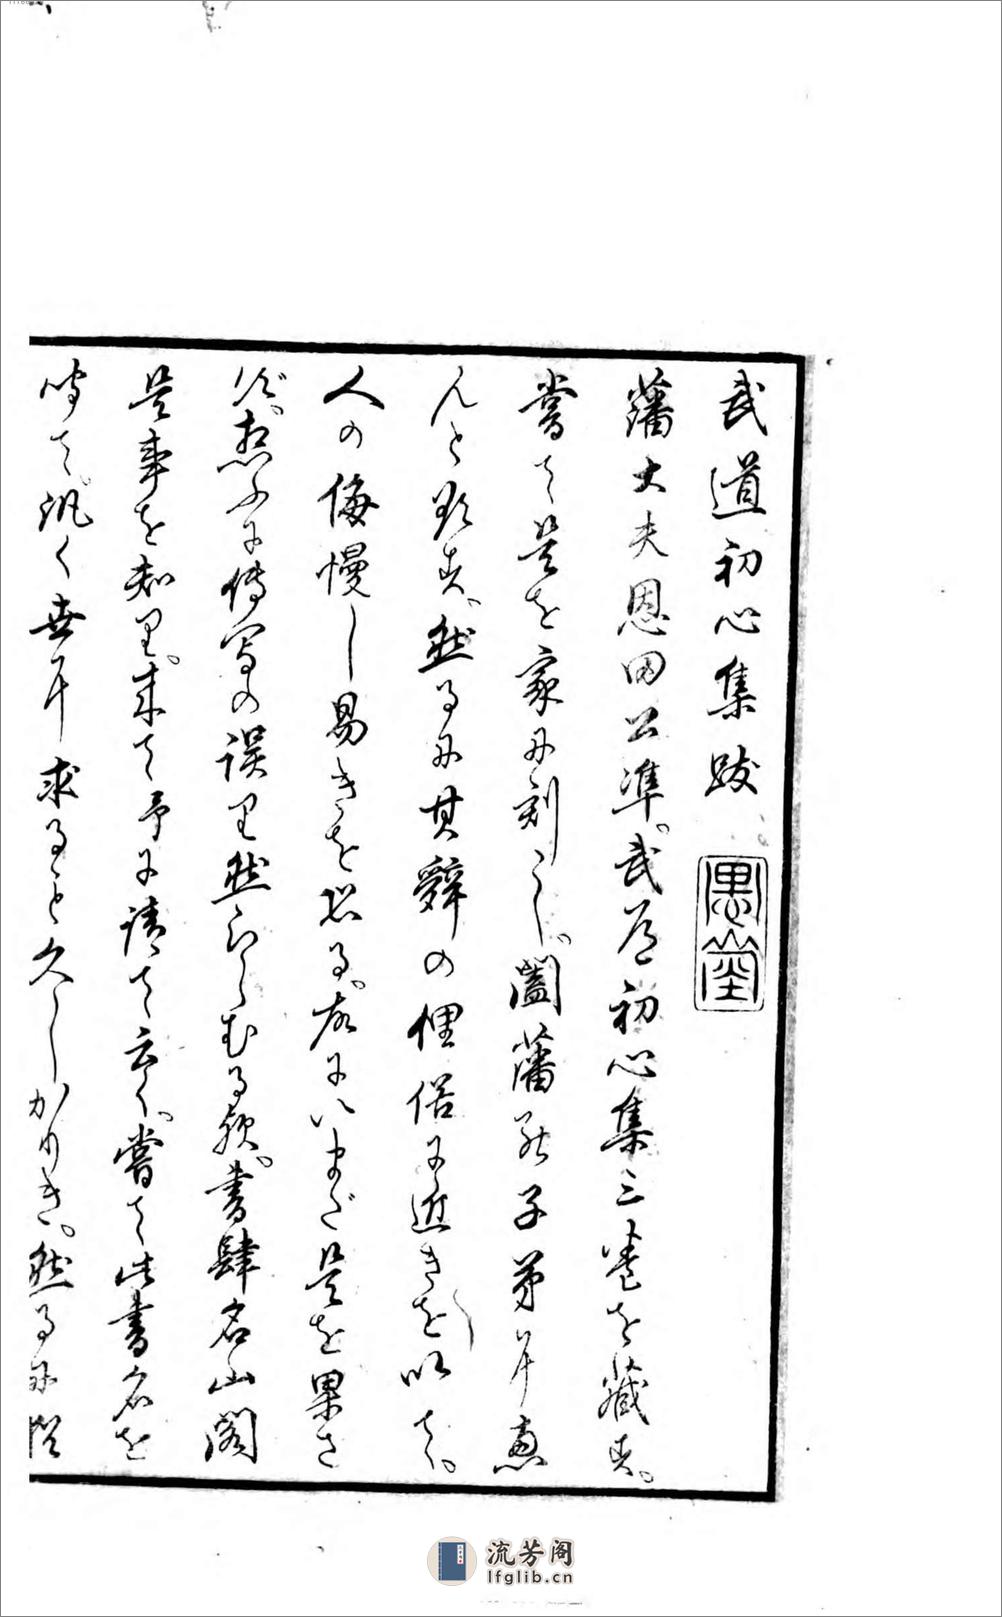 武道初心集跋
藩大夫恩田公準。武道初心集三巻を蔵す。
嘗て是を家に刻し。闔藩の子弟に恵
んと欲す。然るに其辞の俚俗に近きを以て。
人の侮慢し易きを恐る。故にいまだ是を果さ
ず。想ふに伝写の誤り然らしむる歟。書肆名山閣
是事を知り。来て予に請て云く。嘗て此書名を
聞て。汎く世に求ること久しかりき。然るに
流芳阁
lfglib.cn